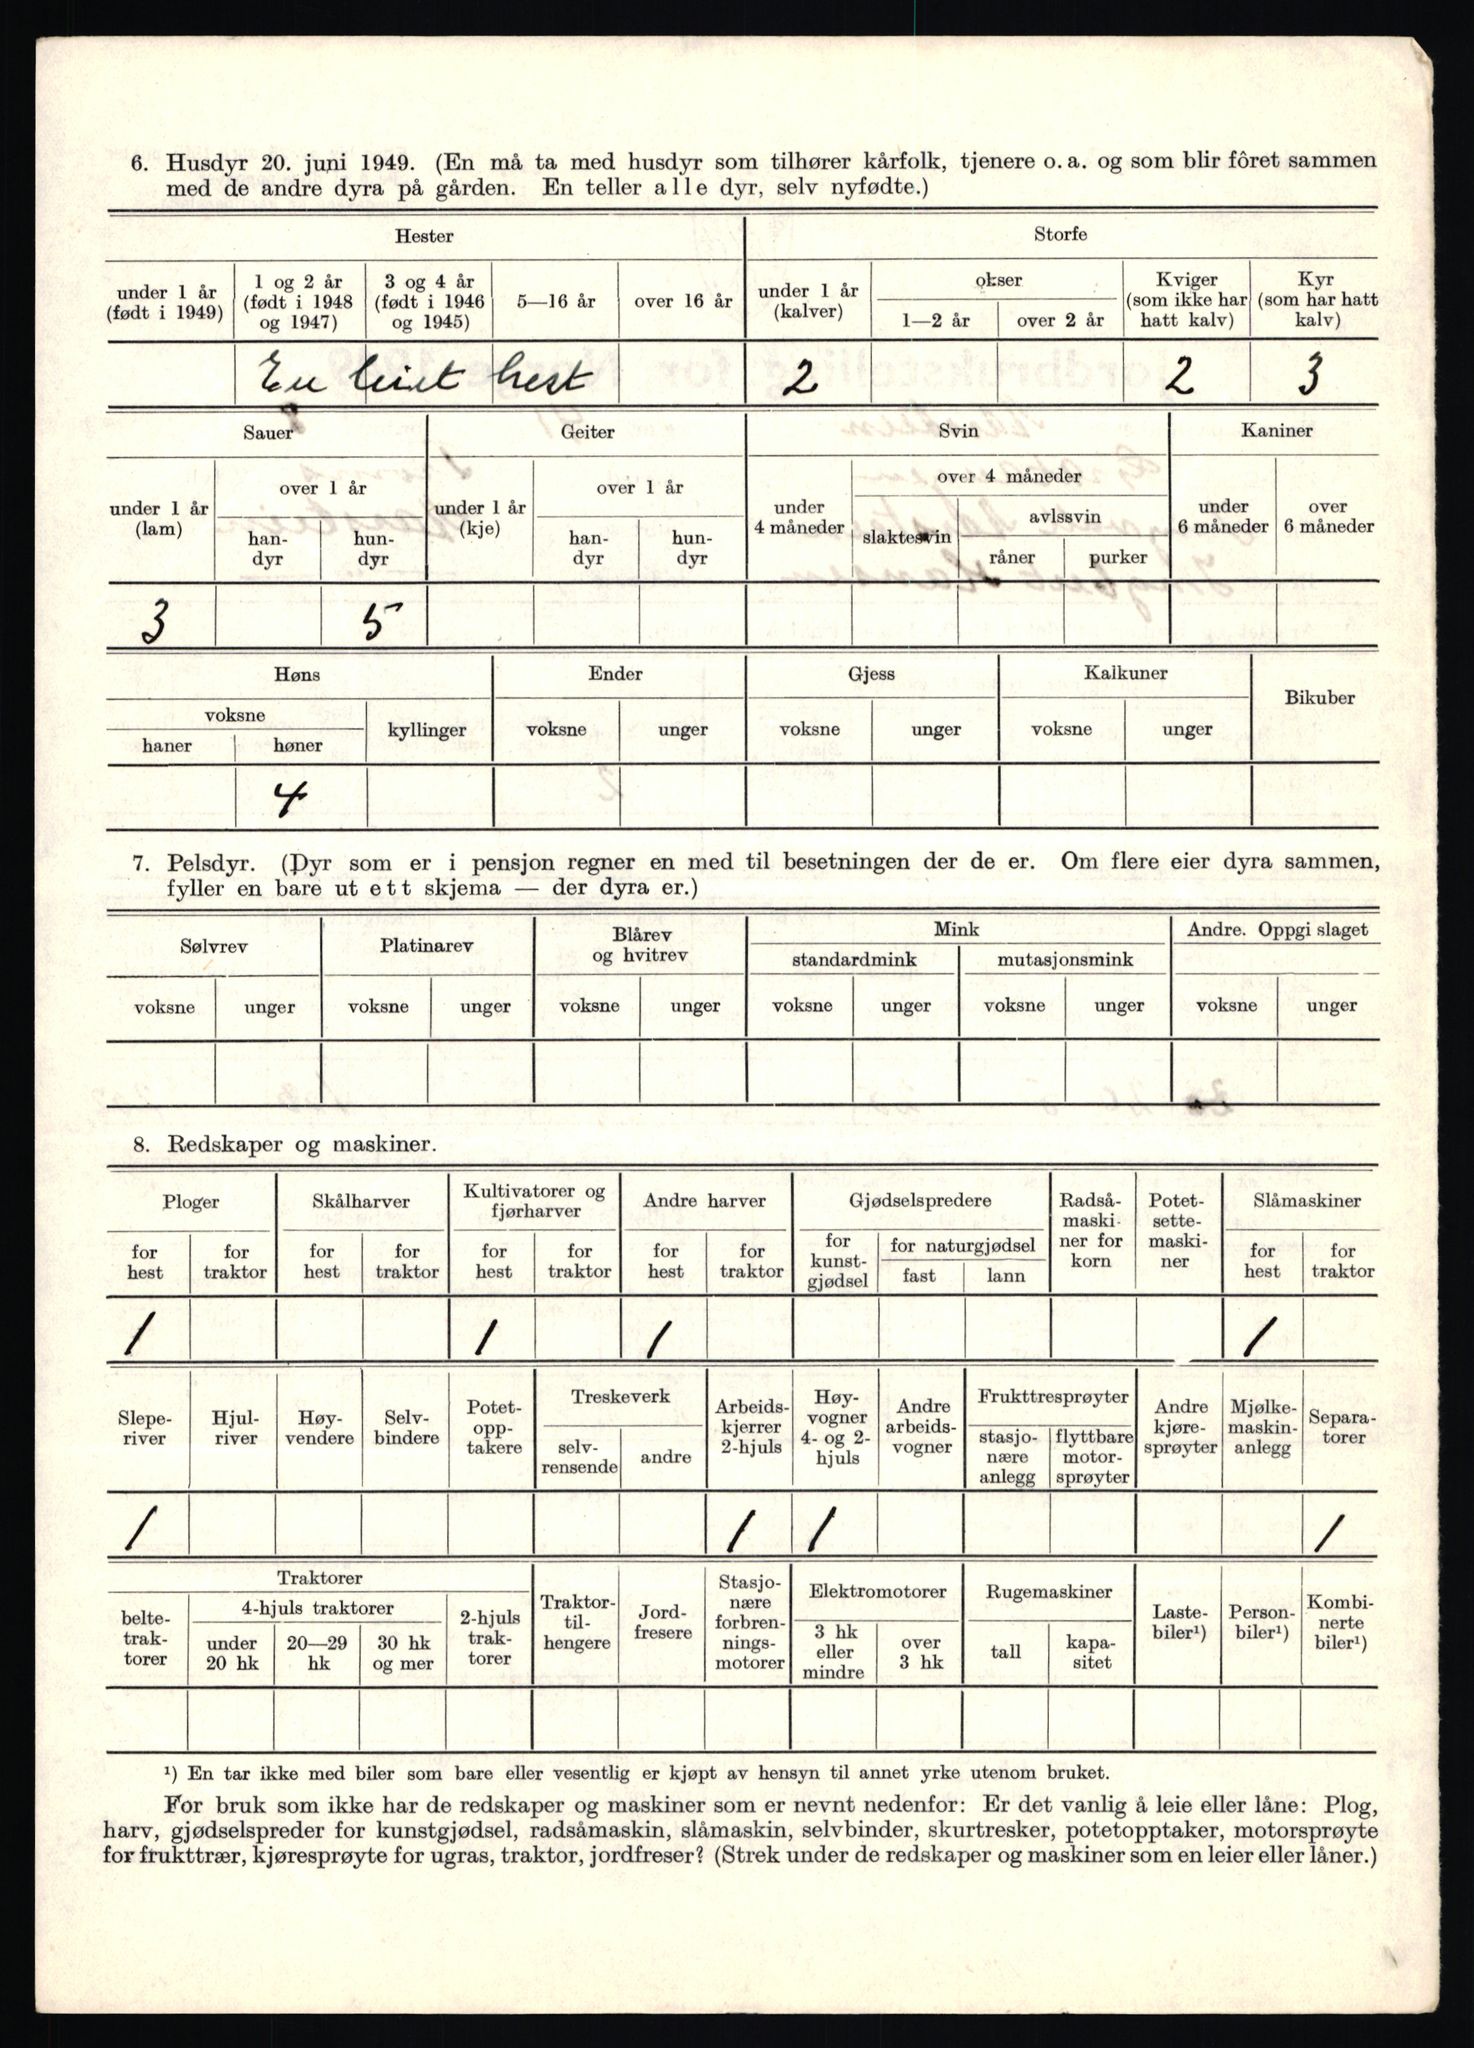 6. Husdyr 20. juni 1949. (En må ta med husdyr som tilhører kårfolk, tjenere o. a. og som blir fôret sammen
med de andre dyra på gården. En teller alle dyr, selv nyfødte.)
Hester Storfe
under 1 år (født i 1949) 1 og 2 år (født i 1948 og 1947) 3 og 4 år (født i 1946 og 1945) 5—16 år over 16 år under 1 år (kalver) okser 1—2 år over 2 år Kviger (som ikke har hatt kalv) Kyr (som har hatt kalv)
En leiet hest 2 2 3
Sauer Geiter Svin Kaniner
under 1 år (lam) over 1 år handyr hundyr under 1 år (kje) over 1 år handyr hundyr under 4 måneder over 4 måneder slaktesvin avlssvin råner purker under 6 måneder over 6 måneder
3 5
Høns Ender Gjess Kalkuner Bikuber
voksne haner høner kyllinger voksne unger voksne unger voksne unger
4
7. Pelsdyr. (Dyr som er i pensjon regner en med til besetningen der de er. Om flere eier dyra sammen,
fyller en bare ut ett skjema — der dyra er.)
Sølvrev Platinarev Blårev og hvitrev Mink Andre. Oppgi slaget
standardmink mutasjonsmink
voksne unger voksne unger voksne unger voksne unger voksne unger voksne unger
8. Redskaper og maskiner.
Ploger Skålharver Kultivatorer og fjørharver Andre harver Gjødselspredere Radsåmaskiner for korn Potetsettemaskiner Slåmaskiner
for hest for traktor for hest for traktor for hest for traktor for hest for traktor for kunstgjødsel for naturgjødsel fast lann for hest for traktor
1 1 1 1
Sleperiver Hjulriver Høyvendere Selvbindere Potetopptakere Treskeverk selvrensende andre Arbeidskjerrer 2-hjuls Høyvogner 4- og 2-hjuls Andre arbeidsvogner Frukttresprøyter stasjonære anlegg flyttbare motorsprøyter Andre kjøresprøyter Mjølkemaskinanlegg Separatorer
1 1 1 1
Traktorer beltetraktorer 4-hjuls traktorer under 20 hk 20—29 hk 30 hk og mer 2-hjuls traktorer Traktortilhengere Jordfresere Stasjonære forbrenningsmotorer Elektromotorer 3 hk eller mindre over 3 hk Rugemaskiner tall kapasitet Lastebiler¹) Personbiler¹) Kombinerte biler¹)
¹) En tar ikke med biler som bare eller vesentlig er kjøpt av hensyn til annet yrke utenom bruket.
For bruk som ikke har de redskaper og maskiner som er nevnt nedenfor: Er det vanlig å leie eller låne: Plog,
harv, gjødselspreder for kunstgjødsel, radsåmaskin, slåmaskin, selvbinder, skurtresker, potetopptaker, motorsprøyte
for frukttrær, kjøresprøyte for ugras, traktor, jordfreser? (Strek under de redskaper og maskiner som en leier eller låner.)